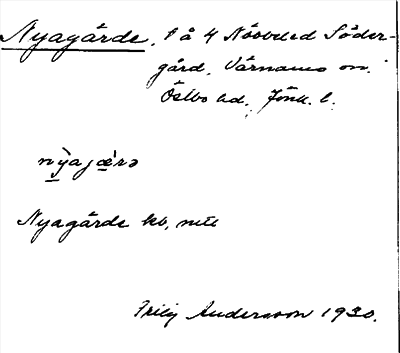 Nyagårde, t å 4 Nöbbeled Söder-
gård, Värnamo sn.
Östbo hd, Jönk. l.
nỳajæ̀rə
Nyagårde kb, mtl
Frity Andersson 1930.